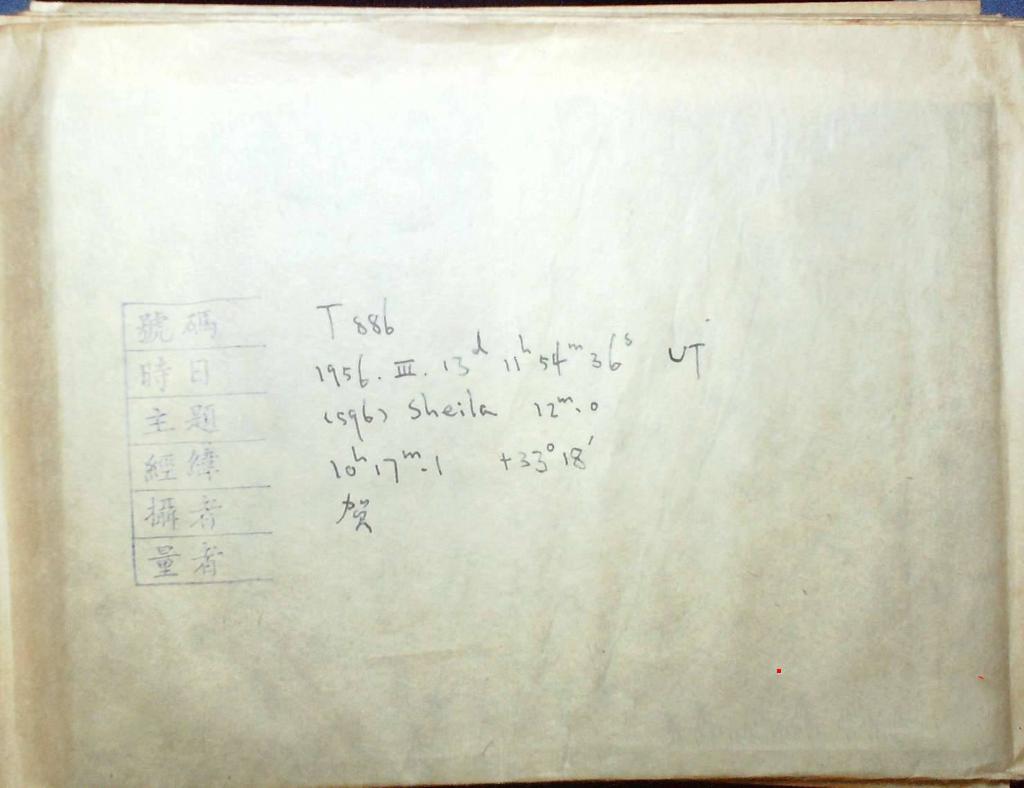 號碼 T 886
時日 1956. III. 13ᵈ 11ʰ 54ᵐ 36ˢ UT
主題 (596) Sheila 12ᵐ.0
經緯 10ʰ 17ᵐ.1 +33° 18′
攝者 贺
量者